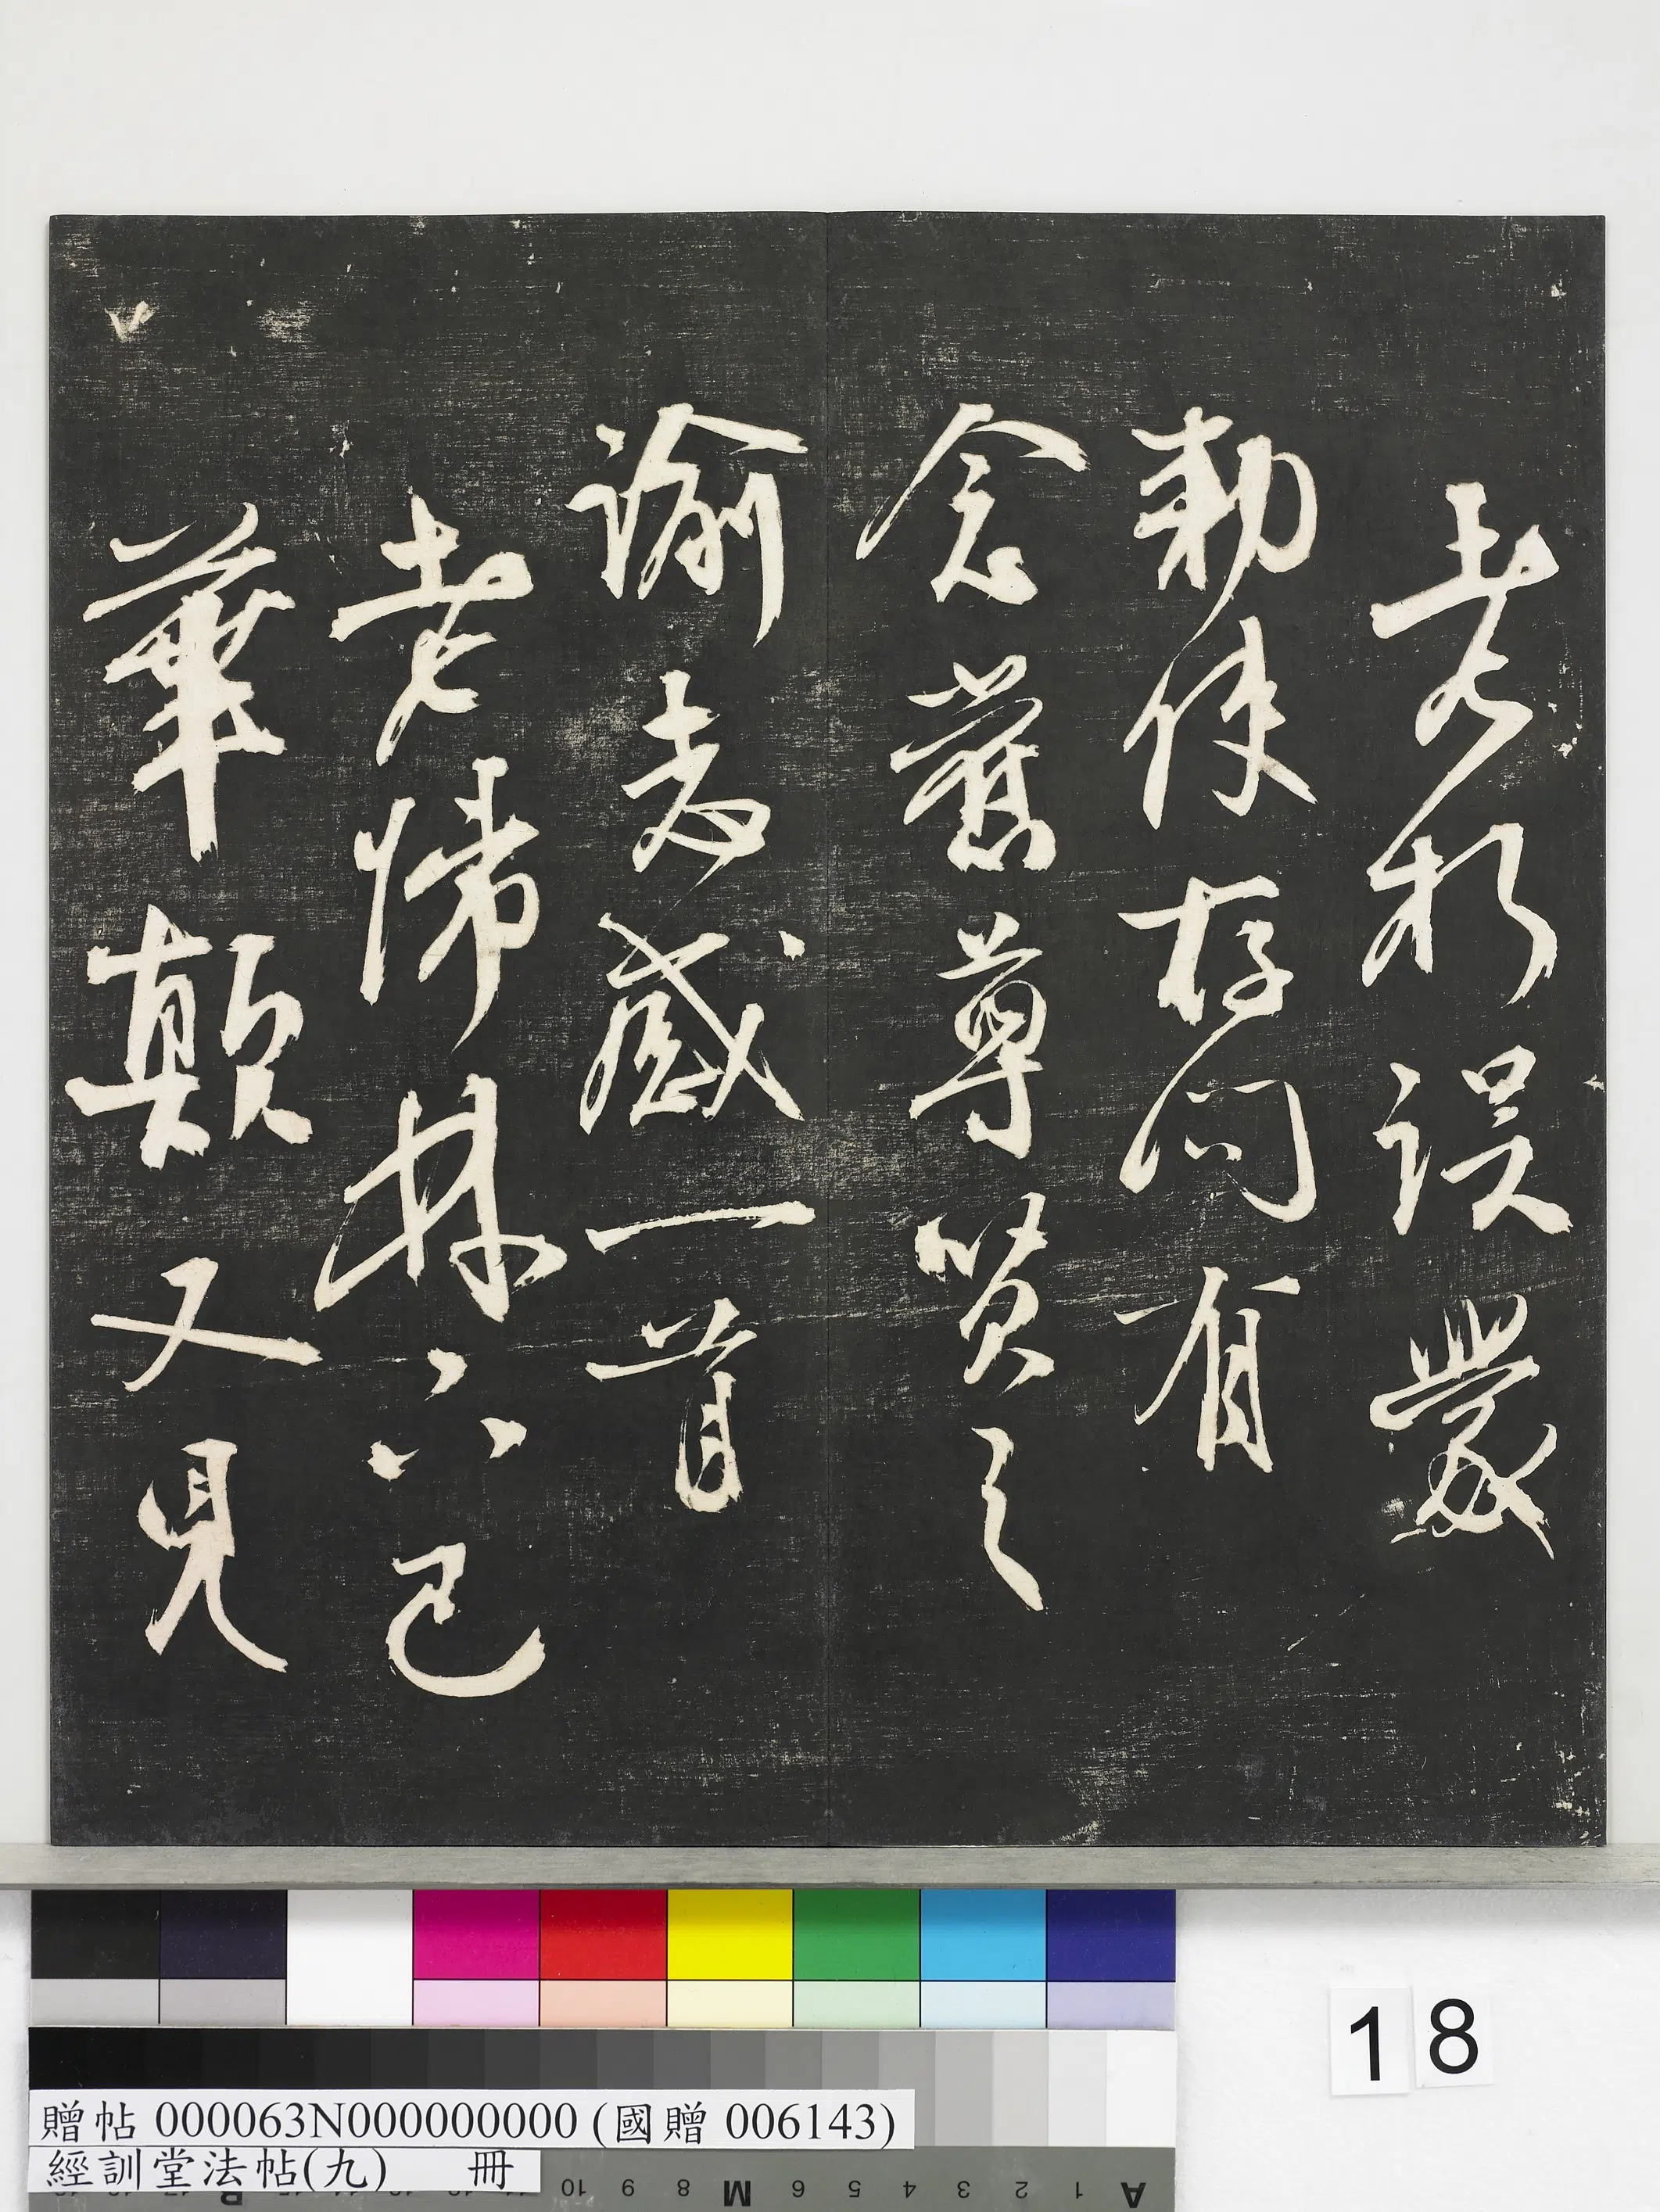 老朽誤蒙
勅使存問有
念舊尊賢之
諭志感一首
老歸林下已
華顛又見
18
贈帖 000063N000000000 (國贈 006143)
經訓堂法帖(九) 冊
10 9 8 M 6 5 4 3 2 1 A